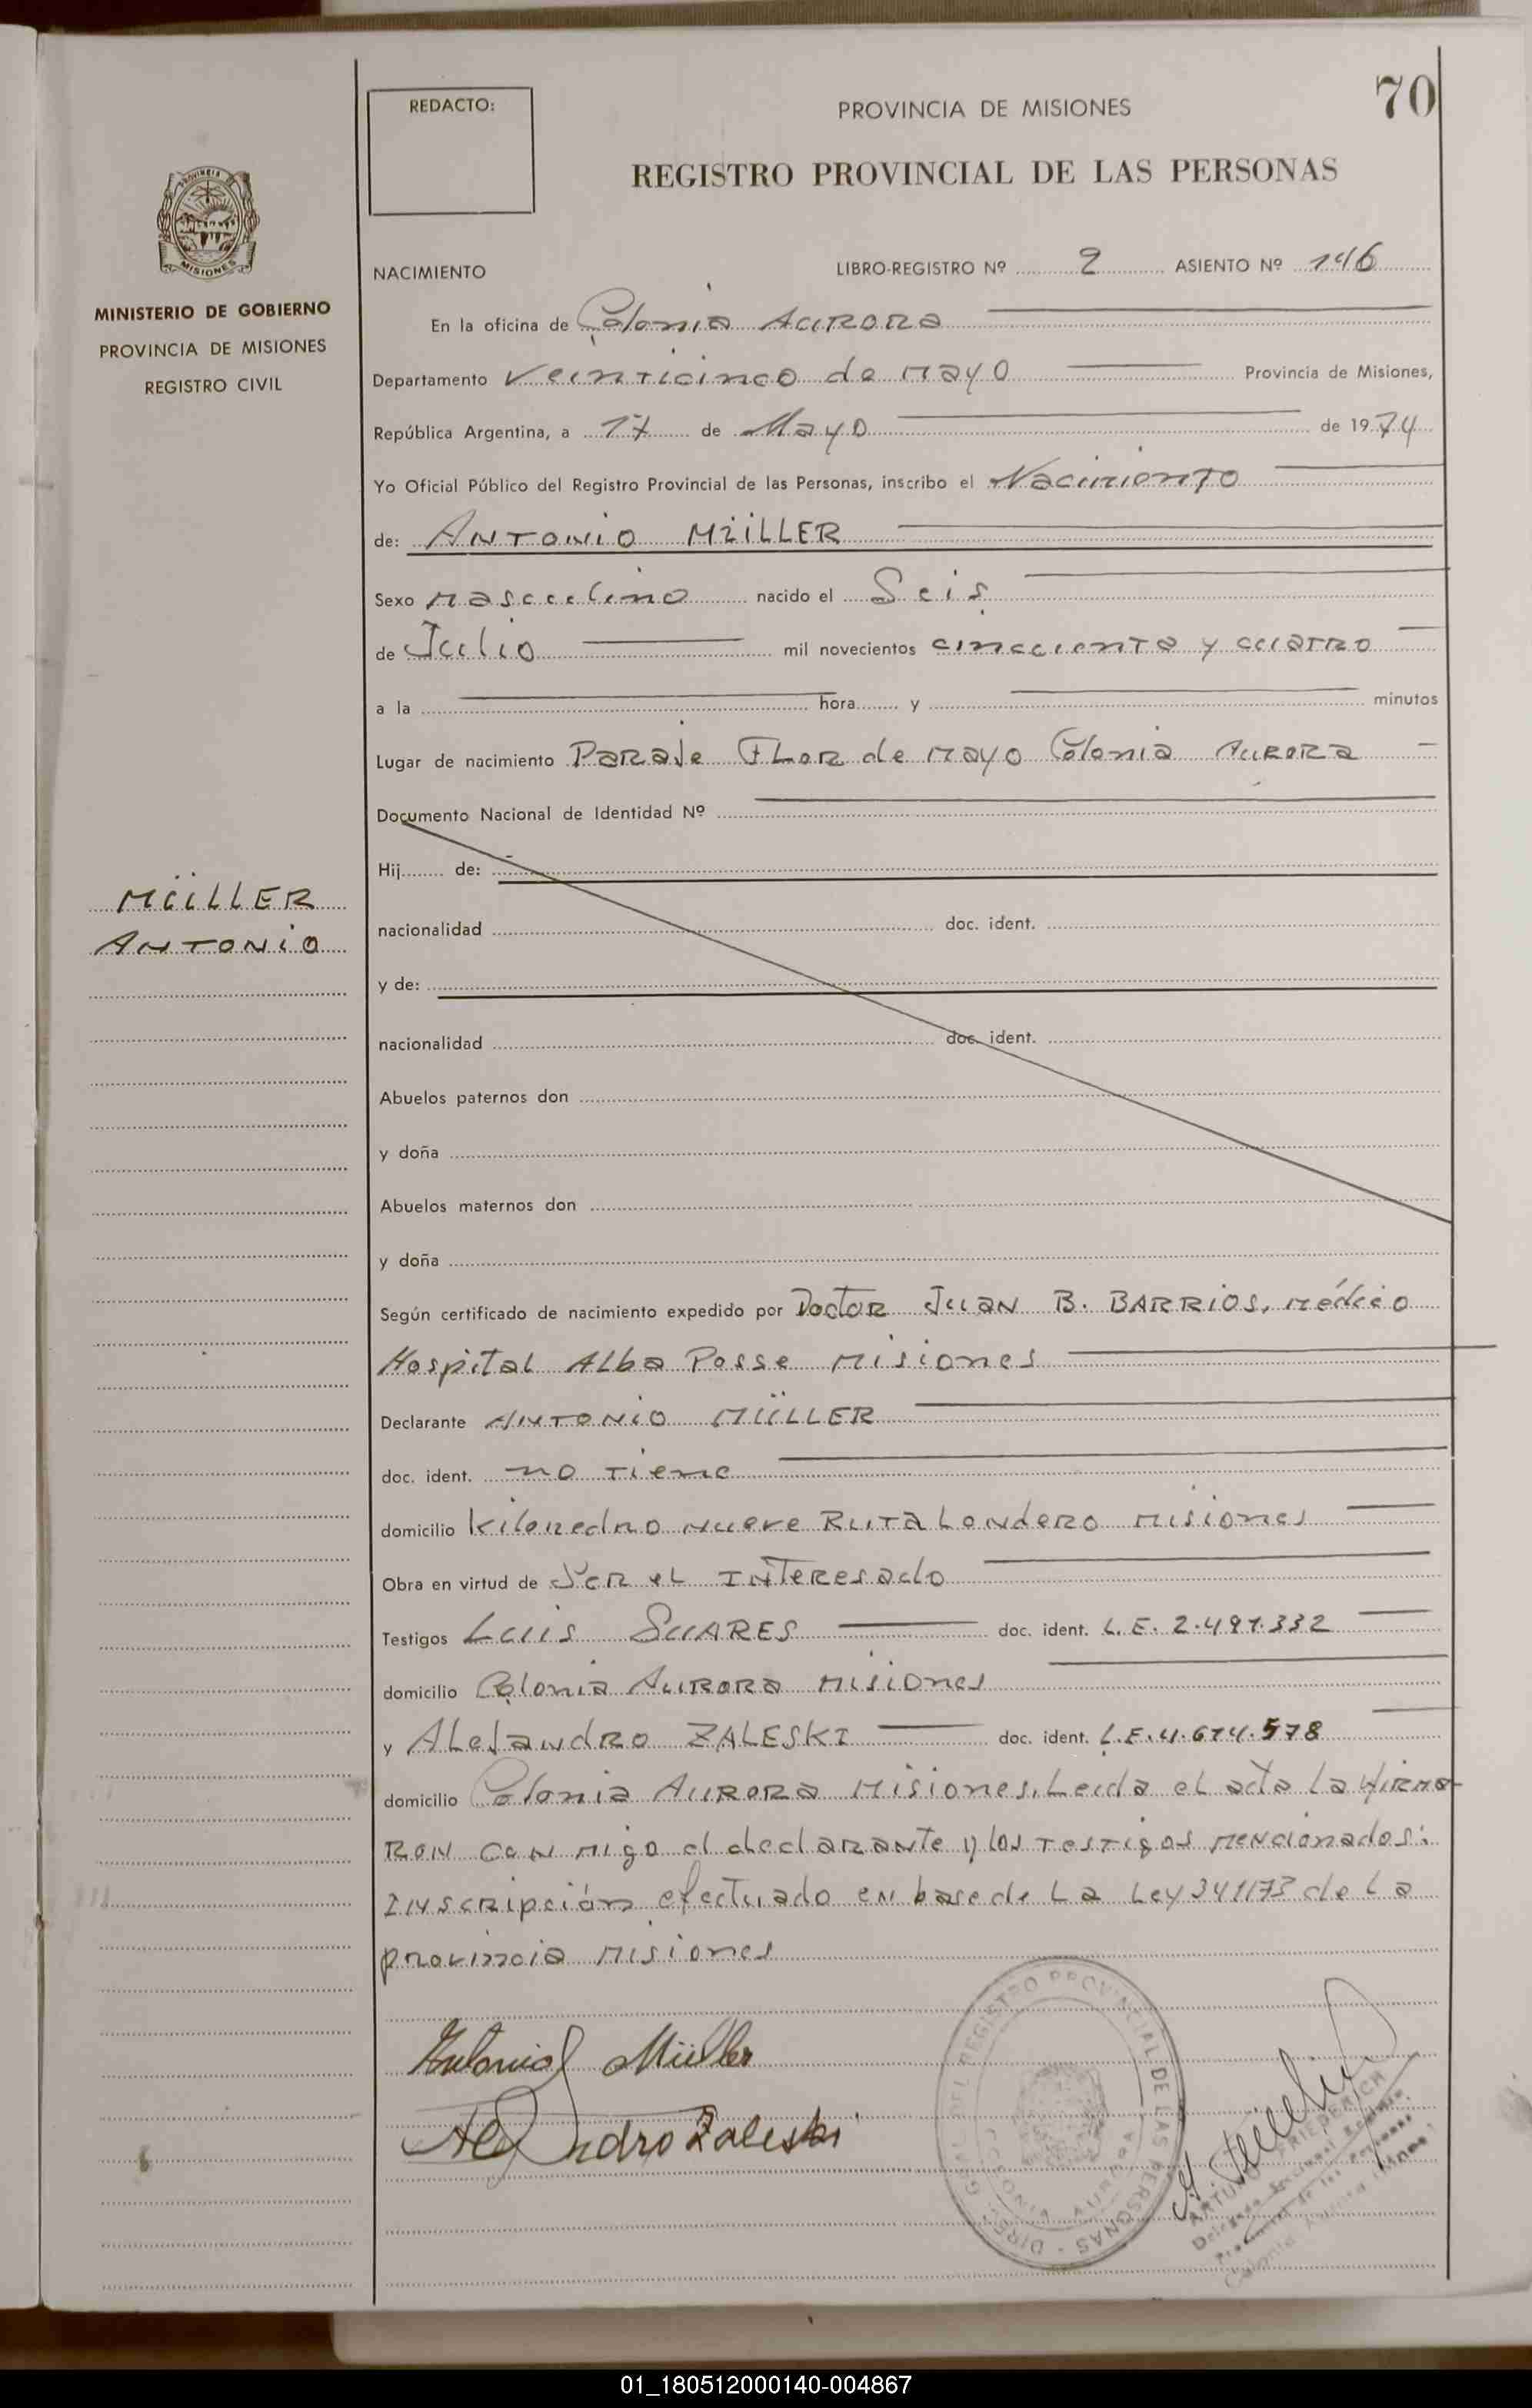 70
REDACTO:
PROVINCIA DE MISIONES
REGISTRO PROVINCIAL DE LAS PERSONAS
PROVINCIA DE
MISIONES
MINISTERIO DE GOBIERNO
PROVINCIA DE MISIONES
REGISTRO CIVIL
NACIMIENTO LIBRO-REGISTRO Nº 2 ASIENTO Nº 146
En la oficina de Colonia Aurora
Departamento Veinticinco de Mayo Provincia de Misiones,
República Argentina, a 17 de Mayo de 1974
Yo Oficial Público del Registro Provincial de las Personas, inscribo el Nacimiento
de: ANTONIO MÜLLER
Sexo masculino nacido el Seis
de Julio mil novecientos cincuenta y cuatro
a la hora y minutos
Lugar de nacimiento Paraje Flor de Mayo Colonia Aurora
Documento Nacional de Identidad Nº
MÜLLER
ANTONIO
Hij de:
nacionalidad doc. ident.
y de:
nacionalidad doc. ident.
Abuelos paternos don
y doña
Abuelos maternos don
y doña
Según certificado de nacimiento expedido por Doctor Juan B. BARRIOS, médico
Hospital Alba Posse Misiones
Declarante ANTONIO MÜLLER
doc. ident. no tiene
domicilio Kilometro nueve Ruta Londero Misiones
Obra en virtud de Ser el Interesado
Testigos Luis SUARES doc. ident. L.E. 2.491.332
domicilio Colonia Aurora Misiones
y Alejandro ZALESKI doc. ident. L.E. 4.614.578
domicilio Colonia Aurora Misiones. Leida el acta la firma-
ron con migo el declarante y los testigos mencionados:
Inscripción efectuado en base de La Ley 341/73 de La
provincia Misiones
Antonio Müller
Alejandro Zaleski
DIREC. GRAL. DEL REGISTRO PROVINCIAL DE LAS PERSONAS
COLONIA AURORA
ARTURO FRIEDERICH
Delegado Seccional Registro
Provincial de las Personas
Colonia Aurora (Mnes.)
01_180512000140-004867